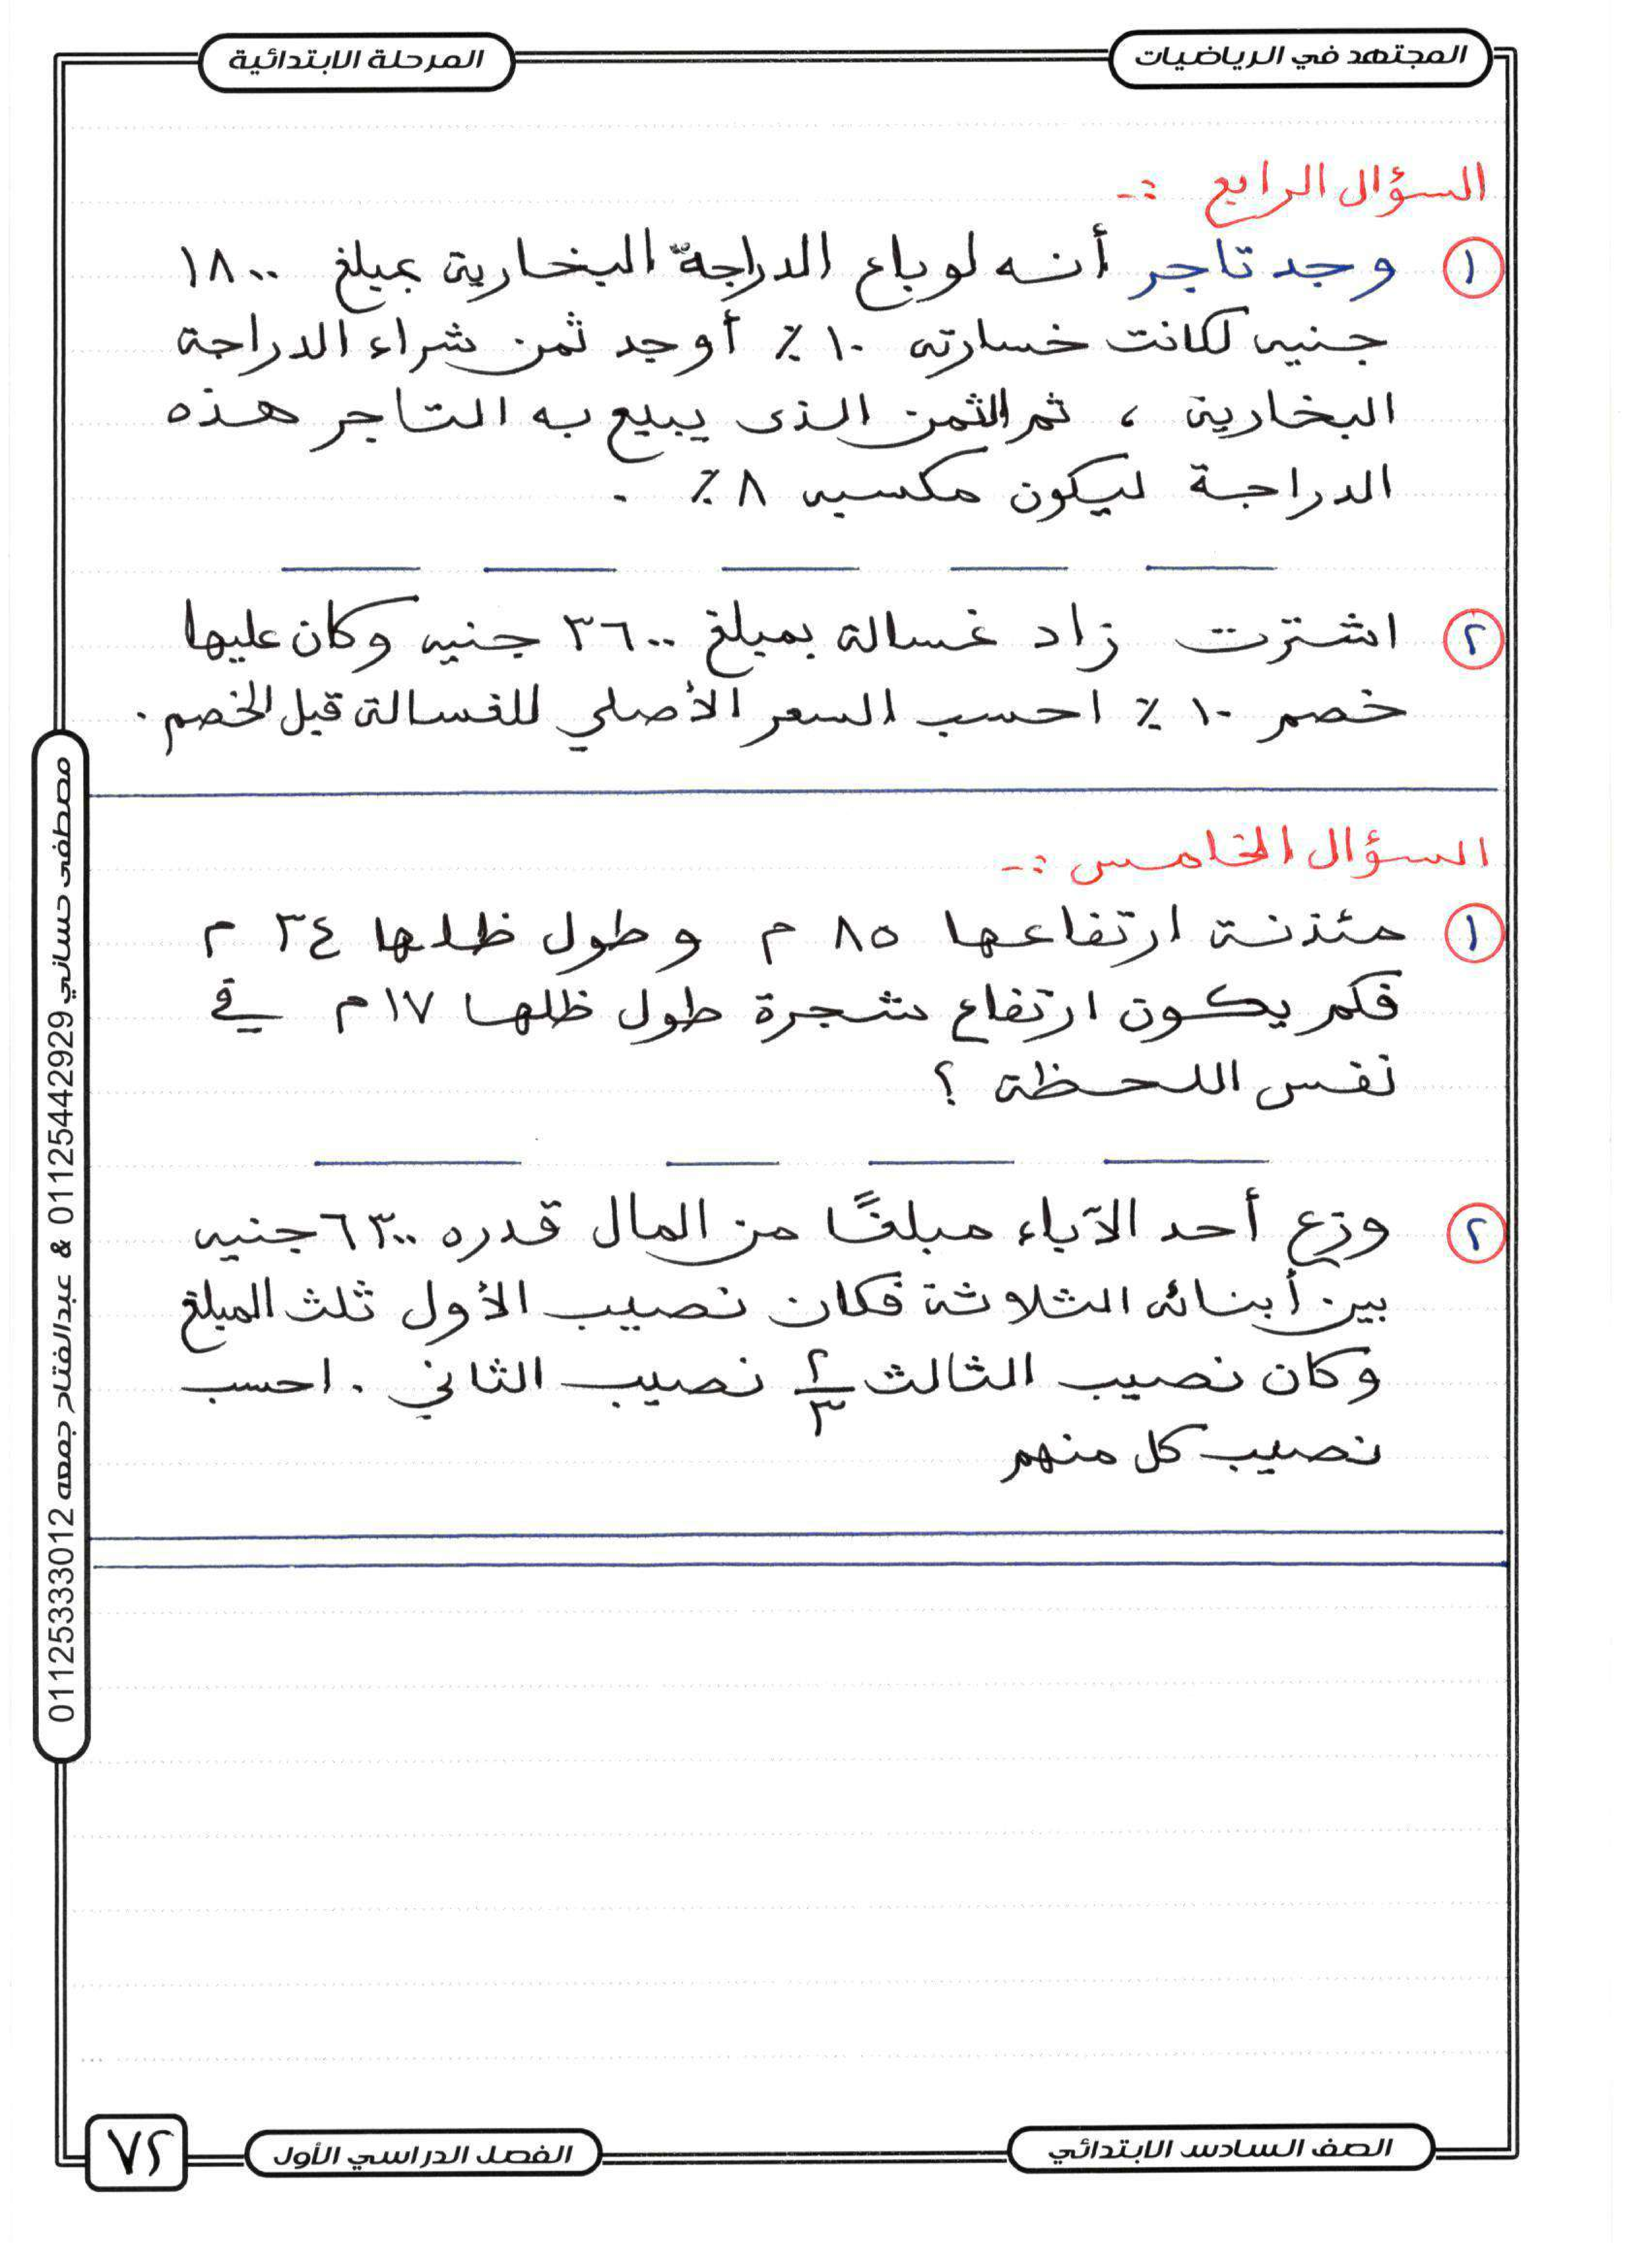 المجتهد في الرياضيات
المرحلة الابتدائية
السؤال الرابع :-
١ وجد تاجر أنه لو باع الدراجة البخارية بمبلغ ١٨٠٠
جنيه لكانت خسارته ١٠ ٪ أوجد ثمن شراء الدراجة
البخارية ، ثم الثمن الذى يبيع به التاجر هذه
الدراجة ليكون مكسبه ٨ ٪ .
٢ اشترت زاد غسالة بمبلغ ٣٦٠٠ جنيه وكان عليها
خصم ١٠ ٪ احسب السعر الأصلي للغسالة قبل الخصم .
السؤال الخامس :-
١ مئذنة ارتفاعها ٨٥ م وطول ظلها ٣٤ م
فكم يكون ارتفاع شجرة طول ظلها ١٧ م في
نفس اللحظة ؟
٢ وزع أحد الآباء مبلغًا من المال قدره ٦٣٠٠ جنيه
بين أبنائه الثلاثة فكان نصيب الأول ثلث المبلغ
وكان نصيب الثالث ٢/٣ نصيب الثاني . احسب
نصيب كل منهم
مصطفى حساني 01125442929 & عبدالفتاح جمعه 01125333012
الصف السادس الابتدائي
الفصل الدراسي الأول
٧٢